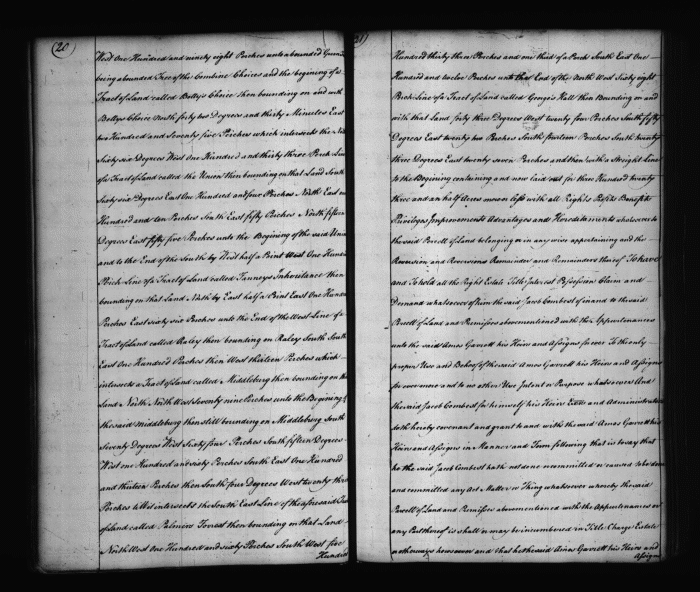 (20)
West One Hundred and ninety eight Perches unto a bounded
being a bounded Tree of the Combine Choices and the begining of a
Tract of Land called Bettys Choice then bounding on and with
Bettys Choice North forty two Degrees and thirty Minutes East
two Hundred and Seventy five Perches which intersects the
Sixty six Degrees West One Hundred and thirty three Perch Line
of a Tract of Land called the Union then bounding on that Land South
Sixty six Degrees East One Hundred and four Perches North East
Hundred and ten Perches South East fifty Perches North fifteen
Degrees East fifty five Perches unto the Begining of the said
and to the End of the South by West half a Point West One
Perch Line of a Tract of Land called Tanneys Inheritance then
bounding on that Land North by East half a Point East One
Perches East sixty six Perches unto the End of the West Line of a
Tract of Land called Raley then bounding on Raley South South
East One Hundred Perches then West thirteen Perches which
intersects a Tract of Land called Middleburg then bounding on the
Land North North West Seventy nine Perches unto the Begining of
the said Middleburg then still bounding on Middleburg South
Seventy Degrees West Sixty four Perches South fifteen Degrees
West one Hundred and sixty Perches South East One Hundred
and thirteen Perches then South four Degrees West twenty
Perches to intersects the South East Line of the aforesaid
of Land called Palmers Forrest then bounding on that Land
North West One Hundred and sixty Perches South West five
Hundred
Hundred thirty three Perches and one third of a Perch South East One
Hundred and twelve Perches unto that End of the North West Sixty eight
Perch Line of a Tract of Land called Georges Hall then Bounding on and
with that Land forty three Degrees West twenty four Perches South fifty
Degrees East twenty two Perches South fourteen Perches South twenty
three Degrees East twenty Seven Perches and then with a Streight Line
to the Begining containing and now laid out for three Hundred twenty
three and an half Acres more or less with all Rights Profits Benefits
Priviliges Improvements Advantages and Hereditaments whatsoever to
the said Parcell of Land belonging or in any wise appertaining and the
Reversion and Reversions Remainder and Remainders thereof To have
and To hold all the Right Estate Title Interest Possession Claim and
Demand whatsoever of him the said Jacob Combest of in and to the said
Parcell of Land and Premisses abovementioned with the Appurtenances
unto the said Amos Garrett his Heirs and Assigns for ever to the only
proper Use and Behoof of the said Amos Garrett his Heirs and Assigns
for ever more and to no other Use Intent or Purpose whatsoever And
the said Jacob Combest for himself his Heirs Exrs and Administrators
doth hereby covenant and grant to and with the said Amos Garrett his
Heirs and Assigns in Manner and Form following that is to say that
he the said Jacob Combest hath not done or committed or caused to be done
and committed any Act Matter or Thing whatsoever whereby the said
Parcell of Land and Premisses abovementioned with the Appurtenances or
any Part thereof is shall or may be incumbered in Title Charge Estate
or otherways howsoever and that he the said Amos Garrett his Heirs and
Assigns